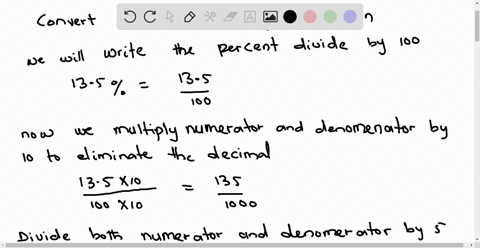 Convert n
we will write the percent divide by 100
13.5 % = 13.5 / 100
now we multiply numerator and denomenator by
10 to eliminate the decimal
13.5 × 10 / 100 × 10 = 135 / 1000
Divide both numerator and denomerator by 5